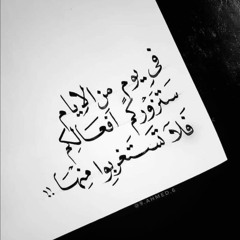 في يوم من الايام
ستزوركم أفعالكم
فلا تستغربوا منها !!
@S.AHMED.G